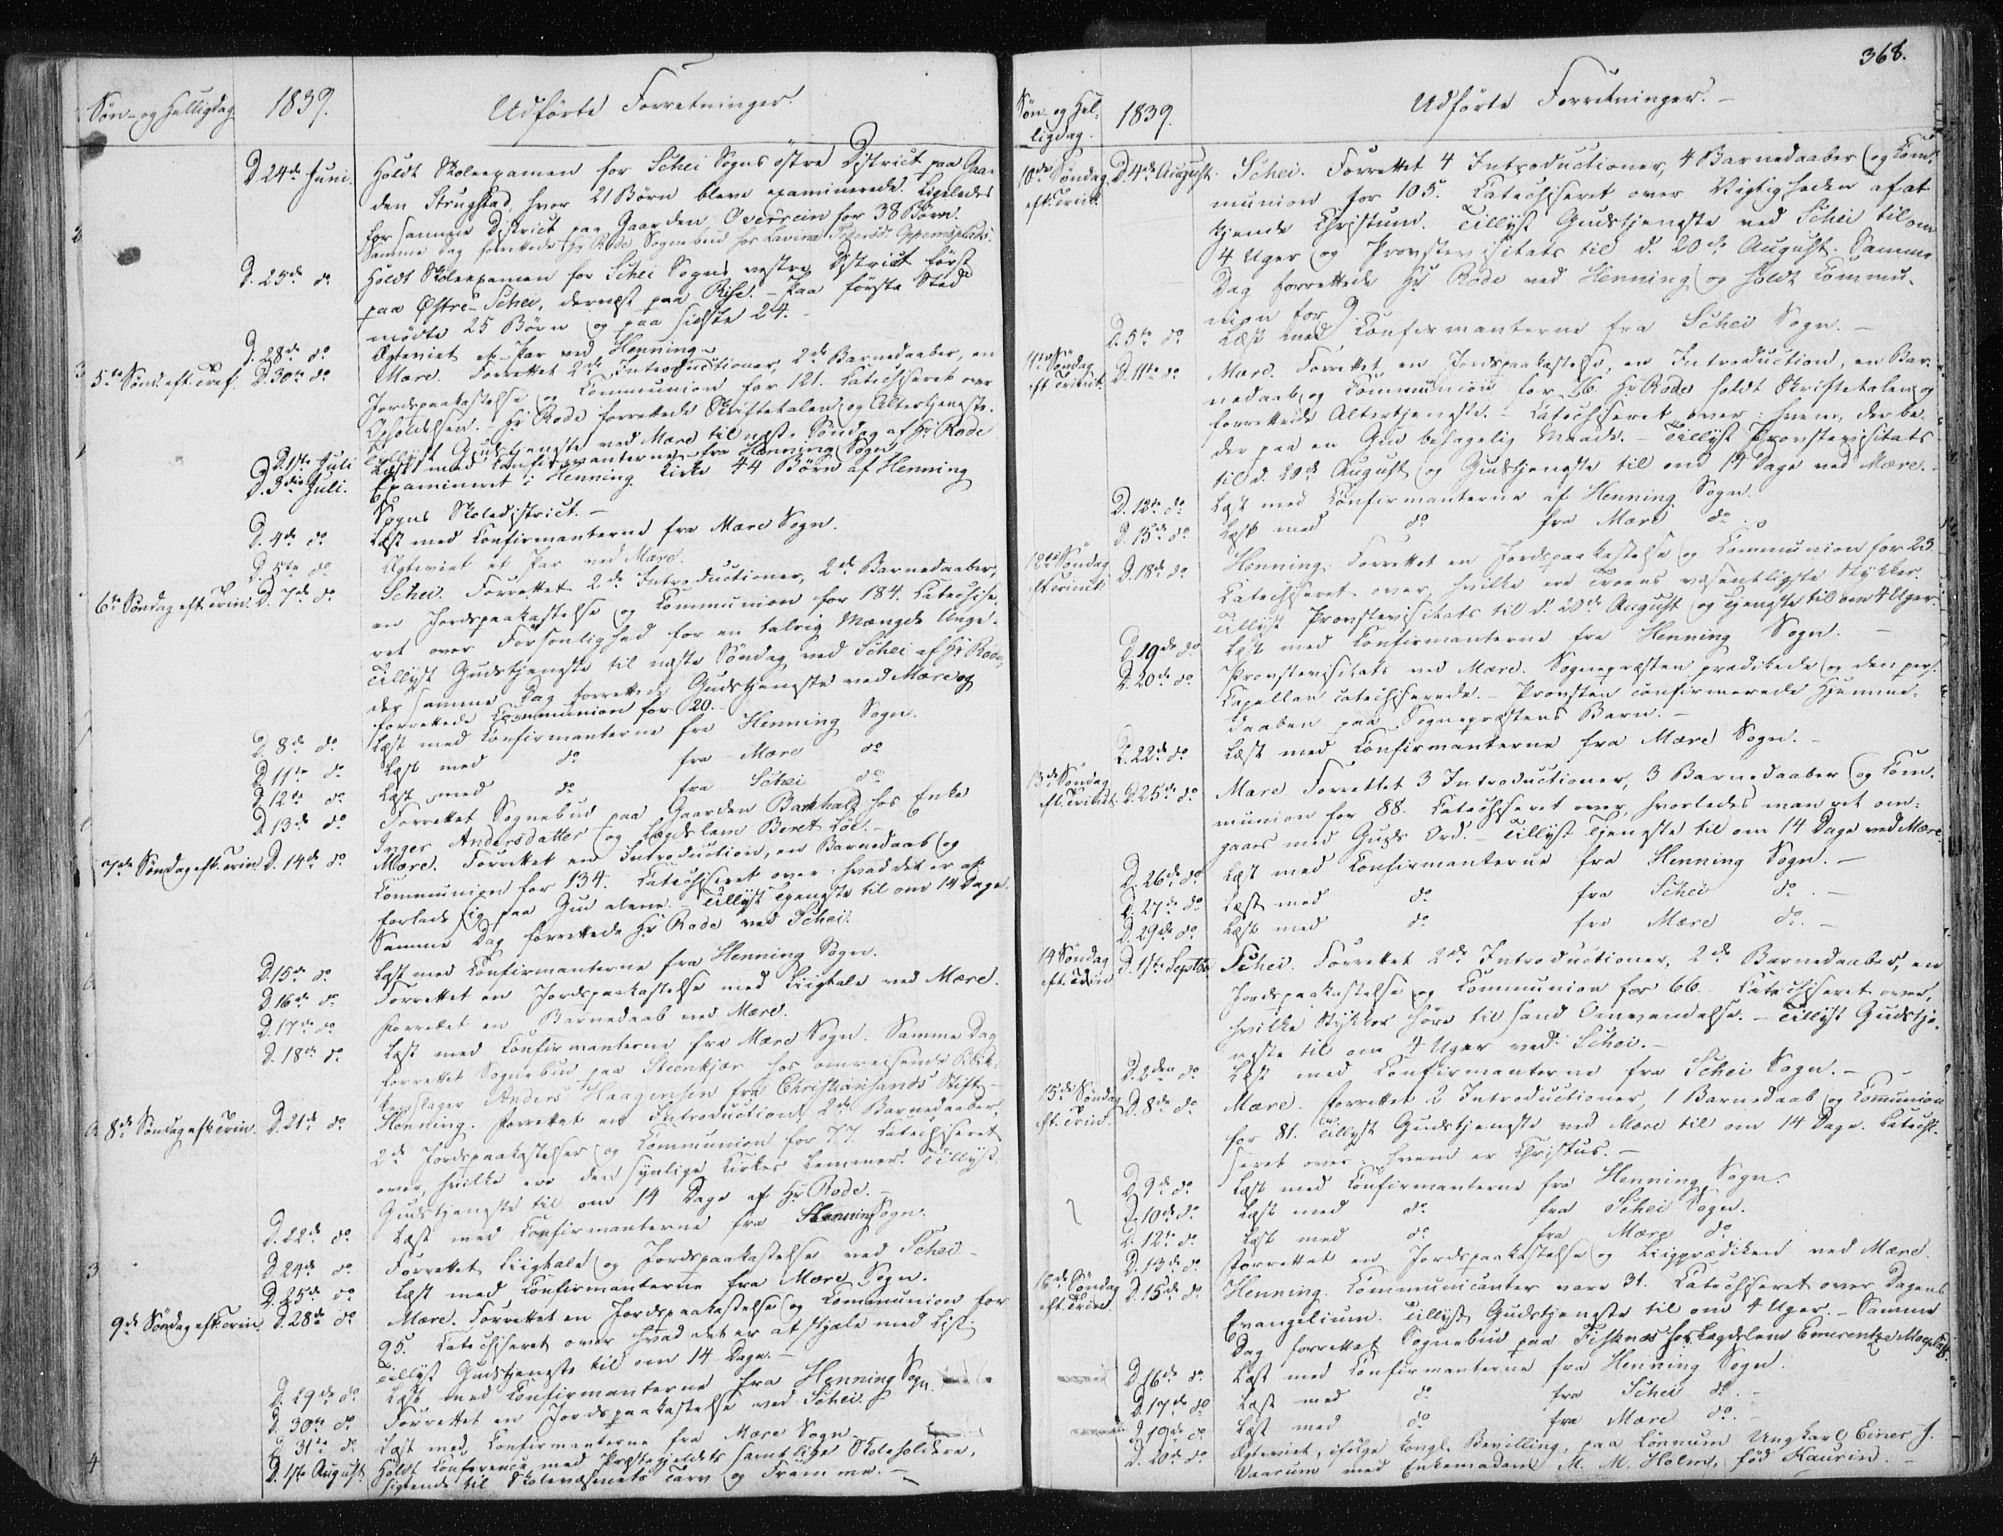 Søn- og Helligdag. 1839. Udførte Forretninger.
D. 24de Juni. Holdt Skoleexamen for Schei Sogns østre District paa Gaar-
den Strugstad, hvor 21 Børn bleve examinerede. Ligeledes
for samme District paa Gaarden Overrein for 38 Børn.
Samme Dag forrettede Hr. Rode Sognebud hos Lavina
D. 25de do Holdt Skoleexamen for Schei Sogns vestre District først
paa Østre-Schei, dernæst paa Rise. – Paa første Sted
mødte 25 Børn og paa sidste 24. –
D. 28de do Ægteviet et Par ved Henning. –
5te Sønd. eft. Tref. D. 30te do Mære. Forrettet 2de Introductioner, 2de Barnedaaber, en
Jordspaakastelse og Kommunion for 121. Katechiseret over
Hr. Rode forrettede Skriftetalen og Altertjeneste.
Tillyst Gudstjeneste ved Mære til næste Søndag af Hr. Rode
D. 1ste Juli Læst med Konfirmanterne fra Henning Sogn.
D. 3die Juli. Examineret i Henning Kirke 44 Børn af Henning
Sogns Skoledistrict. –
D. 4de do Læst med Konfirmanterne fra Mære Sogn.
D. 5te do Ægteviet et Par ved Mære.
6te Søndag eft. Trin. D. 7de do Schei. Forrettet 2de Introductioner, 2de Barnedaaber,
en Jordspaakastelse og Kommunion for 184. Katechise-
ret over Forsonlighed for en talrig Mængde Unge.
Tillyst Gudstjeneste til næste Søndag ved Schei af Hr. Rode,
der samme Dag forrettede Gudstjeneste ved Mære og
forrettede Kommunion for 20.
D. 8de do Læst med Konfirmanterne fra Henning Sogn.
D. 11te do Læst med do fra Mære do
D. 12te do Læst med do fra Schei do
D. 13de do Forrettet Sognebud paa Gaarden Barhald hos Enke
Inger Andersdatter og Lægdslem Beret
7de Søndag eft. Trin. D. 14de do Mære. Forrettet en Introduction, en Barnedaab og
Kommunion for 134. Katechiseret over: hvad det er at
forlade sig paa Gud alene. – Tillyst Tjeneste til om 14 Dage.
Samme Dag forrettede Hr. Rode ved Schei.
D. 15de do Læst med Konfirmanterne fra Henning Sogn.
D. 16de do Forrettet en Jordspaakastelse med Liigtale ved Mære.
D. 17de do Forrettet en Barnedaab ved Mære.
D. 18de do Læst med Konfirmanterne fra Mære Sogn. Samme Dag
forrettet Sognebud paa Steenkjær hos omreisende
Anders Haagensen fra Christiansands Stift. –
8de Søndag eft. Trin. D. 21de do Henning. Forrettet en Introduction, 2de Barnedaaber,
2de Jordspaakastelser og Kommunion for 77. Katechiseret
over hvilke ere den synlige Kirkes Lemmer. Tillyst
Gudstjeneste til om 14 Dage af Hr. Rode. –
D. 22de do Læst med Konfirmanterne fra Henning Sogn.
D. 24de do Forrettet Liigtale og Jordspaakastelse ved Schei –
D. 25de do Læst med Konfirmanterne fra Mære Sogn.
9de Søndag eft. Trin. D. 28de do Mære. Forrettet en Jordspaakastelse og Kommunion for
95. Katechiseret over hvad det er at stjæle med List.
Tillyst Gudstjeneste til om 14 Dage. –
D. 29de do Læst med Konfirmanterne fra Henning Sogn.
D. 30te do Forrettet en Jordspaakastelse ved Schei.
D. 31te do Læst med Konfirmanterne fra Mære Sogn.
D. 1ste August. Holdt Konference med Præstegjeldets samtlige Skoleholdere,
sigtende til Skolevæsenets Tarv og Fremme. –
368.
Søn- og Hel-
ligdag. 1839. Udførte Forretninger. –
10de Søndag D. 4de August. Schei. Forrettet 4 Introductioner, 4 Barnedaaber og Kom-
eft. Trinit. munion for 105. Katechiseret over Vigtigheden af at
kjende Christum. Tillyst Gudstjeneste ved Schei til om
4 Uger og Provstevisitats til d. 20de August. Samme
Dag forrettede Hr. Rode ved Henning og holdt Kommu-
nion for 9.
D. 5te do Læst med Konfirmanterne fra Schei Sogn. –
11te Søndag D. 11te do Mære. Forrettet en Jordspaakastelse, en Introduction, en Bar-
eft. Trinit. nedaab og Kommunion for 26. Hr. Rode holdt Skriftetalen og
forrettede Altertjeneste. – Katechiseret over: hvem, der be-
der paa en Gud behagelig Maade. – Tillyst Provstevisitats
til d. 20de August og Gudstjeneste til om 14 Dage ved Mære.
D. 13te do Læst med Konfirmanterne af Henning Sogn.
D. 15de do Læst med do fra Mære do
12te Søndag D. 18de do Henning. Forrettet en Jordspaakastelse og Kommunion for 23.
eft. Trinit. Katechiseret over, hvilke ere Troens væsentligste Stykker.
Tillyst Provstevisitats til d. 20de August og Tjeneste til om 4 Uger.
D. 19de do Læst med Konfirmanterne fra Henning Sogn. –
D. 20de do Provstevisitats ved Mære. Sognepræsten prædikede og den pers.
Kapellan katechiserede. – Provsten confirmerede Hjemme-
daaben paa Sognepræstens Barn. –
D. 22de do Læst med Konfirmanterne fra Mære Sogn. –
13de Søndag
eft. Trinit. D. 25de do Mære. Forrettet 3 Introductioner, 3 Barnedaaber og Kom-
munion for 88. Katechiseret over, hvorledes man ret om-
gaaes med Guds Ord. – Tillyst Tjeneste til om 14 Dage ved Mære.
D. 26de do Læst med Konfirmanterne fra Henning Sogn. –
D. 27de do Læst med do fra Schei do. –
D. 29de do Læst med do fra Mære do. –
14 Søndag D. 1ste Septbr. Schei. Forrettet 2de Introductioner, 2de Barnedaaber, en
eft. Trin. Jordspaakastelse og Kommunion for 66. Katechiseret over,
hvilke Stykker høre til sand Omvendelse. – Tillyst Gudstje-
neste til om 4 Uger ved Schei. –
D. 2den do Læst med Konfirmanterne fra Schei Sogn. –
15de Søndag D. 8de do Mære. Forrettet 2 Introductioner, 1 Barnedaab og Kommunion
eft. Trin. for 81. Tillyst Gudstjeneste ved Mære til om 14 Dage. Katechi-
seret over: hvem er Christus. –
D. 9de do Læst med Konfirmanterne fra Henning Sogn.
D. 10de do Læst med do fra Schei Sogn.
D. 12te do Læst med do fra Mære do
D. 13de do Forrettet en Jordspaakastelse og Liigprædiken ved Mære.
16de Søndag D. 15de do Henning. Kommunicanter vare 31. Katechiseret over Dagens
eft. Trin. Evangelium. Tillyst Gudstjeneste til om 4 Uger. – Samme
Dag forrettet Sognebud paa Fisknæs hos Lægdslem Emerentze
D. 16de do Læst med Konfirmanterne fra Henning Sogn.
D. 17de do Læst med do fra Schei do. –
D. 19de do Læst med do fra Mære do. –
D. 20de do Ægteviet, ifølge kongl. Bevilling, paa Lønnum Ungkarl Einer J.
Vaarum med Enkemadam M. M. Holm, født Kaurin. –